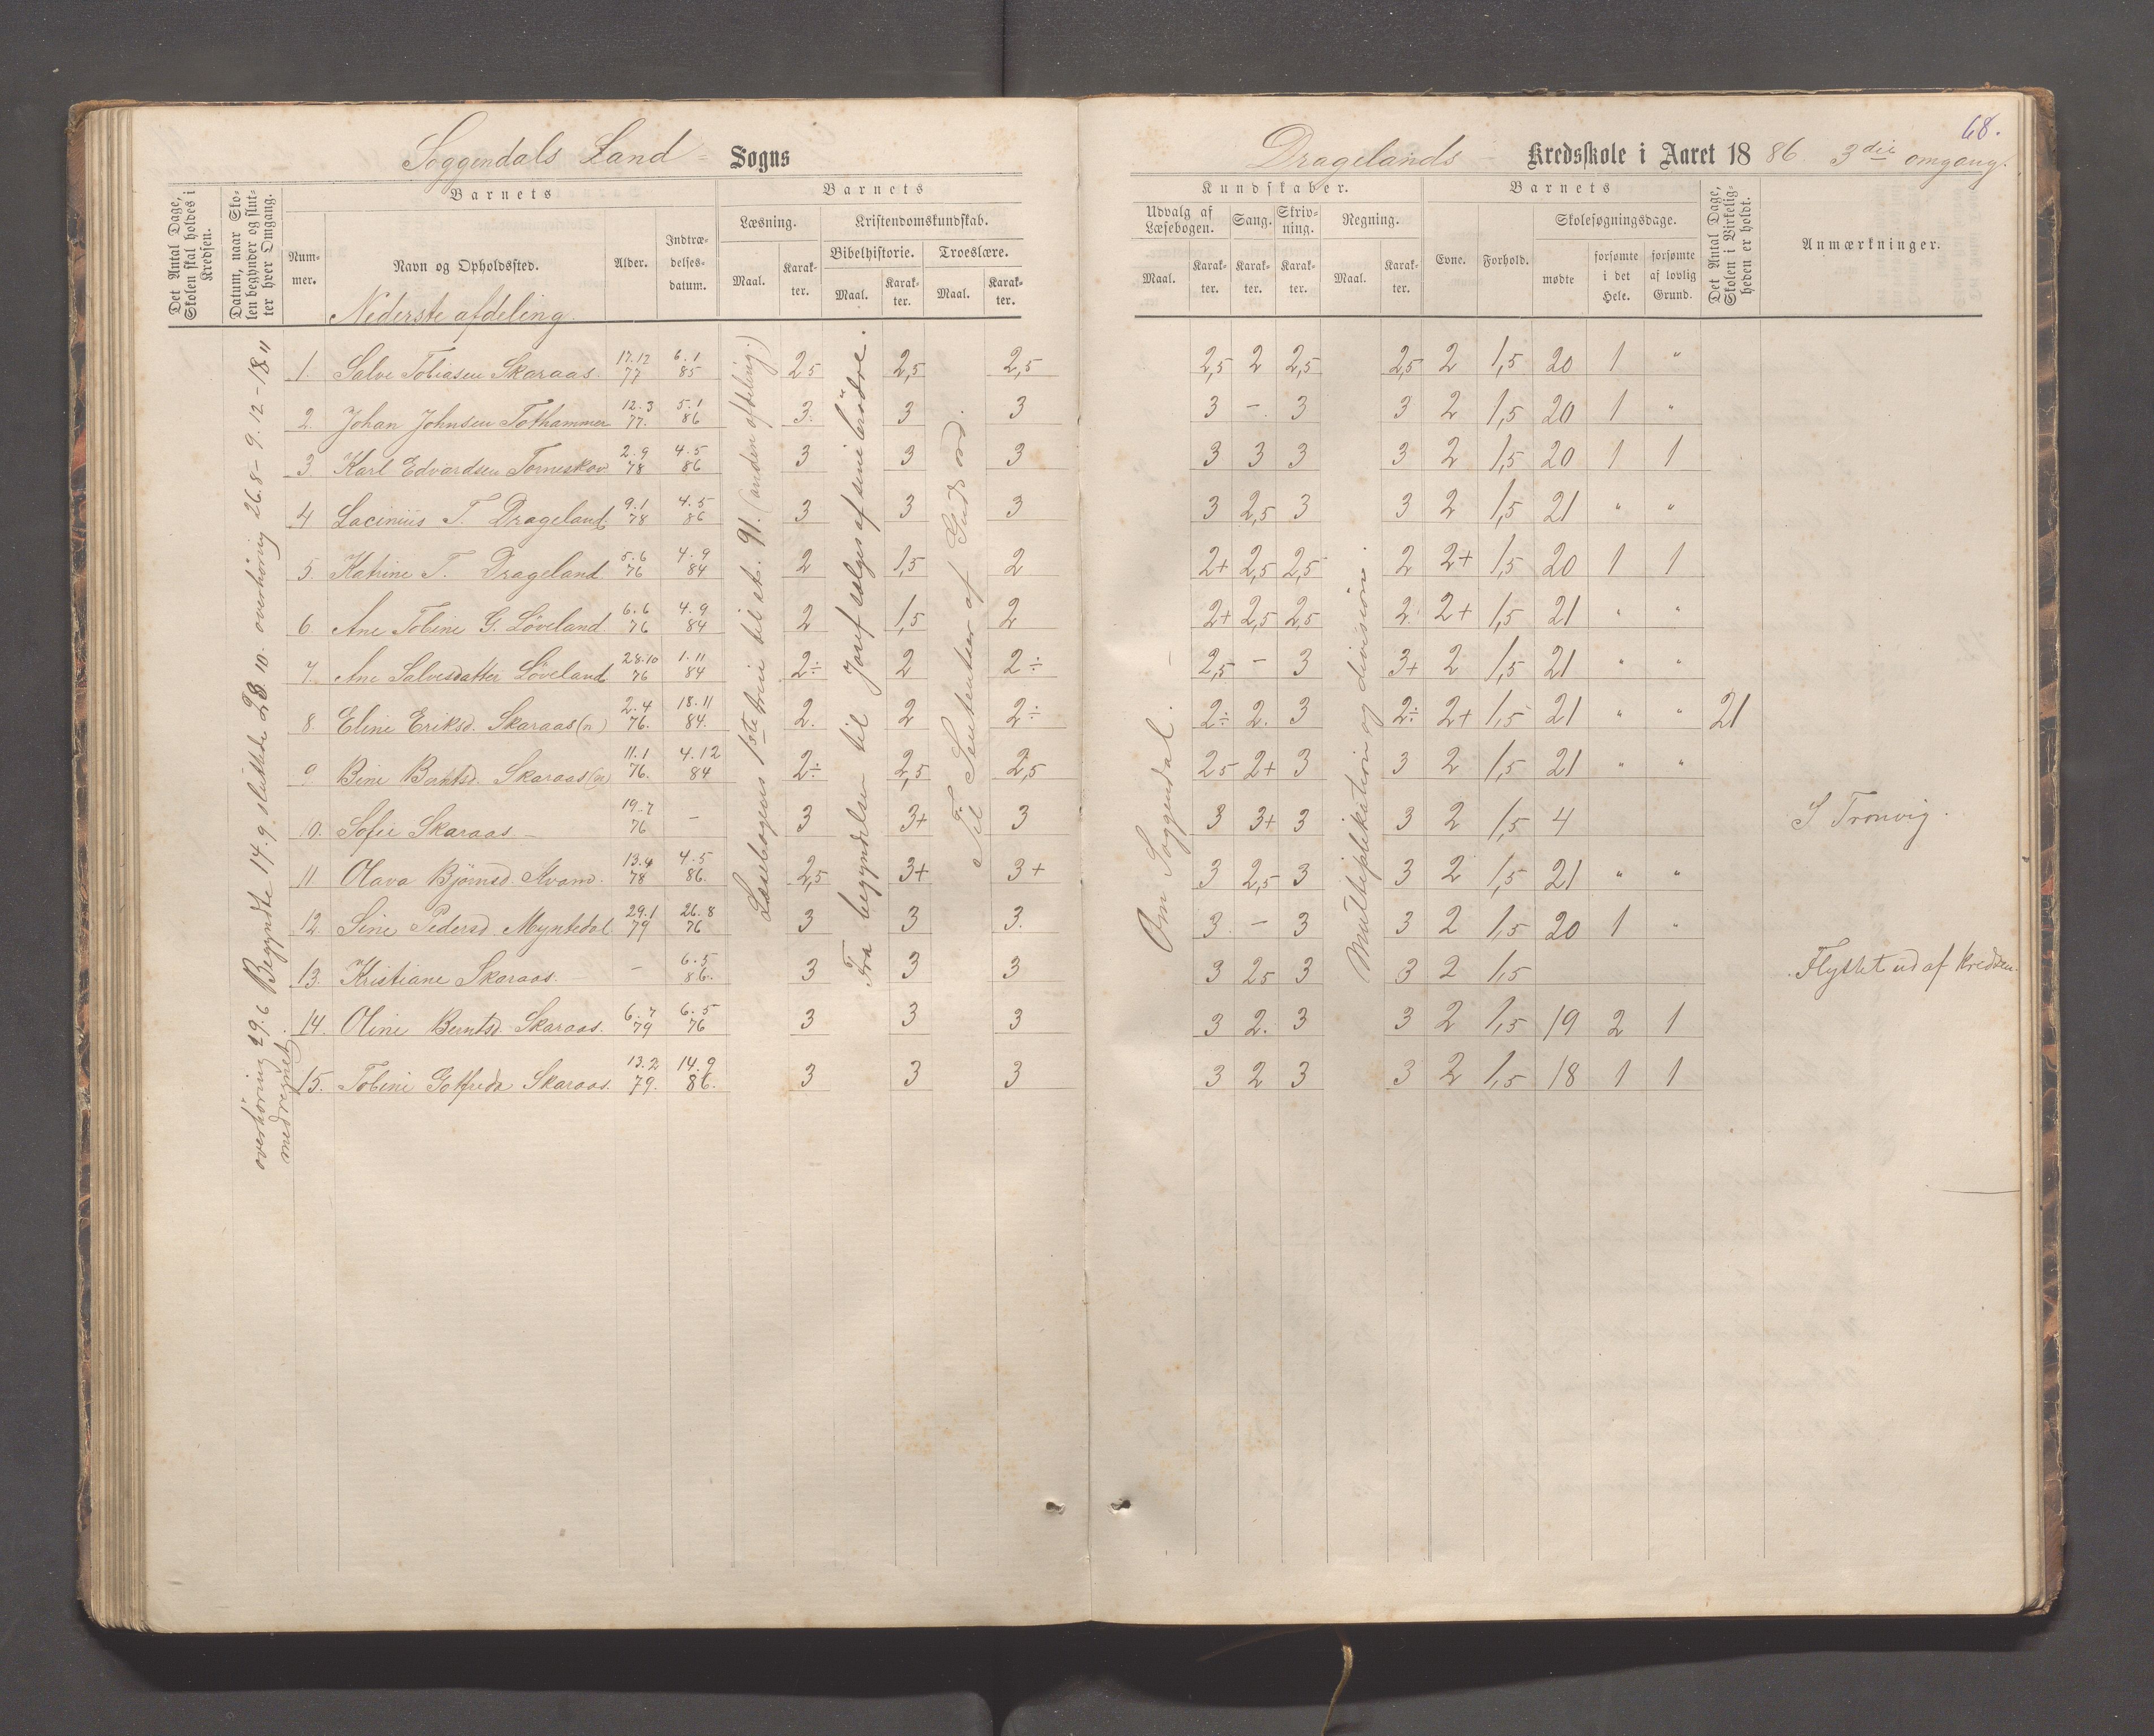 68.
Soggendals Land- Sogns
Dragelands Kredsskole i Aaret 1886. 3die omgang.
Det Antal Dage, Skolen skal holdes i Kredsen.
Datum, naar Skolen begynder og slutter hver Omgang.
Barnets
Nummer.
Navn og Opholdssted.
Nederste afdeling.
Alder.
Indtrædelsesdatum.
Barnets
Læsning.
Maal.
Karakter.
Kristendomskundskab.
Bibelhistorie.
Maal.
Karakter.
Troeslære.
Maal.
Karakter.
Kundskaber.
Udvalg af Læsebogen.
Maal.
Karakter.
Sang.
Karakter.
Skrivning.
Karakter.
Regning.
Maal.
Karakter.
Barnets
Evne.
Forhold.
Skolesøgningsdage.
mødte
forsømte i det Hele.
forsømte af lovlig Grund.
Det Antal Dage, Skolen i Virkeligheden er holdt.
Anmærkninger.
Begyndte 14.9. sluttede 28.10. overhøring 26.8 - 9.12 - 18.11
overhøring 29.6
medregnet.
Læsebogens 1ste trin til st. 91. (anden afdeling.)
Fra begyndelsen til Josef sælges af sine brødre.
Til Sententser af Guds ord.
Om Soggendal. -
Multiplikation og division.
1. Salve Tobiasen Skaraas. 17.12 77 6.1 85 2,5 2,5 2,5 2,5 2 2,5 2,5 2 1,5 20 1 "
2. Johan Johnsen Tothammer 12.3 77. 5.1 86 3. 3 3 3 -. 3 3 2 1,5 20 1 "
3 Karl Edvardsen Torneskov 2.9 78 4.5 86 3 3 3 3 3 3 3 2 1,5 20 1 1
4 Lacinius T. Drageland. 9.1 78 4.5 86 3 3 3 3 2,5 3 3 2 1,5 21 " "
5. Katrine T. Drageland. 5.6 76 4.9 84 2 1,5 2 2+ 2,5 2,5 2 2+ 1,5 20 1 1
6. Ane Tobine G. Løveland. 6.6 76 4.9 84 2 1,5 2 2+ 2,5 2,5 2. 2+ 1,5 21 " "
7. Ane Salvesdatter Løveland 28.10 76 1.11 84 2÷ 2 2÷ 2,5 - 3 3+ 2 1,5 21 " "
8. Eline Eriksd. Skaraas (n) 2.4 76. 18.11 84. 2. 2 2÷ 2÷ 2. 3 2÷ 2+ 1,5 21 " " 21
9 Bine Berntsd. Skaraas 11.1 76. 4.12 84 2÷ 2,5 2,5 25 2+ 3 3 2 1,5 21 " "
10. Sofie Skaraas - 19.7 76 - 3 3+ 3 3 3+ 3 3 2 1,5 4 I Tronvig.
11. Olava Bjørnsd. Kvam. 13.4 78 4.5 86. 2,5 3+ 3+ 3 2,5 3 3 2 1,5 21 " "
12. Sine Pedersd. Myntedal 29.1 79 26.8 76 3 3 3. 3. - 3 3 2 1,5 20 1 "
13. Kristiane Skaraas. - 6.5 86. 3 3 3 3 25 3 3 2 1,5 Flyttet ud af kredsen.
14. Oline Berntsd. Skaraas. 6.7 79 6.5 76 3 3 3 3 2. 3 3 2 1,5 19 2 1
15. Tobine Gotfreda Skaraas. 13.2 79. 14.9 86. 3 3 3 3 2 3 3 2 1,5 18 1 1